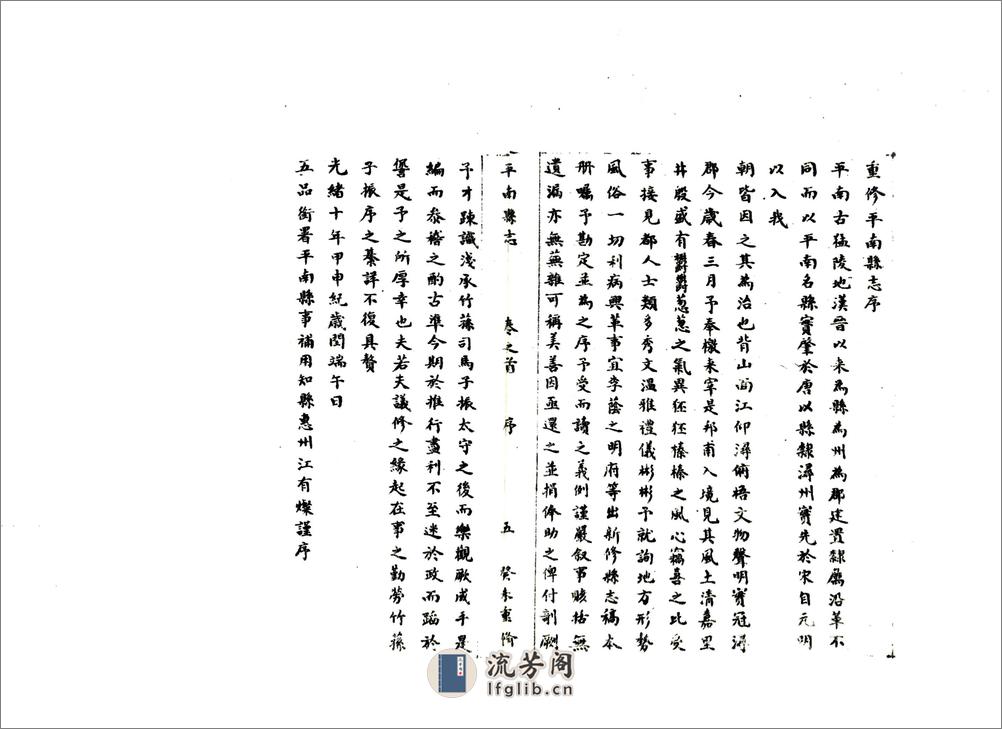 重修平南縣志序
平南古猛陵地漢晉以來為縣為州為郡建置隸屬沿革不
同而以平南名縣實肇於唐以縣隸潯州實先於宋自元明
以入我
朝皆因之其為治也背山面江仰潯俯梧文物聲明實冠潯
郡今歲春三月予奉檄来宰是邦甫入境見其風土清嘉里
井殷盛有鬱鬱葱葱之氣異狉狉榛榛之風心竊喜之比受
事接見都人士類多秀文温雅禮儀彬彬予就詢地方形勢
風俗一切利病興革事宜李蔭之明府等出新修縣志稿本
册囑予勘定並為之序予受而讀之義例謹嚴叙事賅括無
遺漏亦無蕪雜可稱美善因亟還之並捐俸助之俾付剞劂
平南縣志 卷之首 序 五 癸未重脩
予才踈識淺承竹蓀司馬子振太守之後而樂觀厥成手是
編而叅稽之酌古準今期於推行盡利不至迷於政而蹈於
愆是予之所厚幸也夫若夫議修之緣起在事之勤勞竹蓀
子振序之綦詳不復具贅
光緒十年甲申紀歲閏端午日
五品銜署平南縣事補用知縣惠州江有燦謹序
流芳阁
lfglib.cn